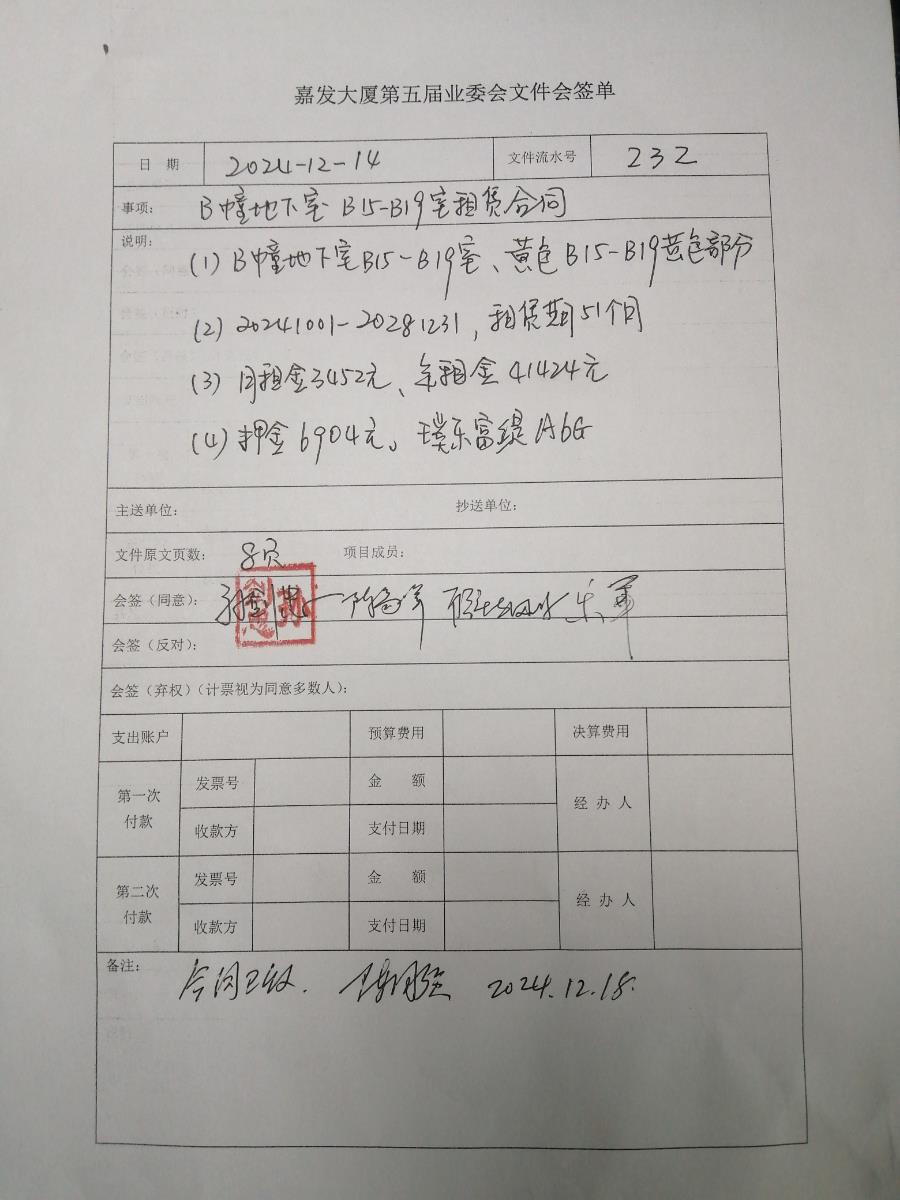 嘉发大厦第五届业委会文件会签单
日 期 2024-12-14 文件流水号 232
事项: B幢地下室 B15-B19室租赁合同
说明:
(1) B幢地下室B15-B19室、黄色B15-B19黄色部分
(2) 20241001-20281231,租赁期51个月
(3) 月租金3452元、年租金41424元
(4) 押金6904元。璞乐富缇A6G
主送单位: 抄送单位:
文件原文页数: 8页 项目成员:
会签(同意):
会签(反对):
会签(弃权)(计票视为同意多数人):
支出账户 预算费用 决算费用
第一次付款 发票号 金 额 经 办 人
收款方 支付日期
第二次付款 发票号 金 额 经 办 人
收款方 支付日期
备注:
合同已收. 2024.12.18.